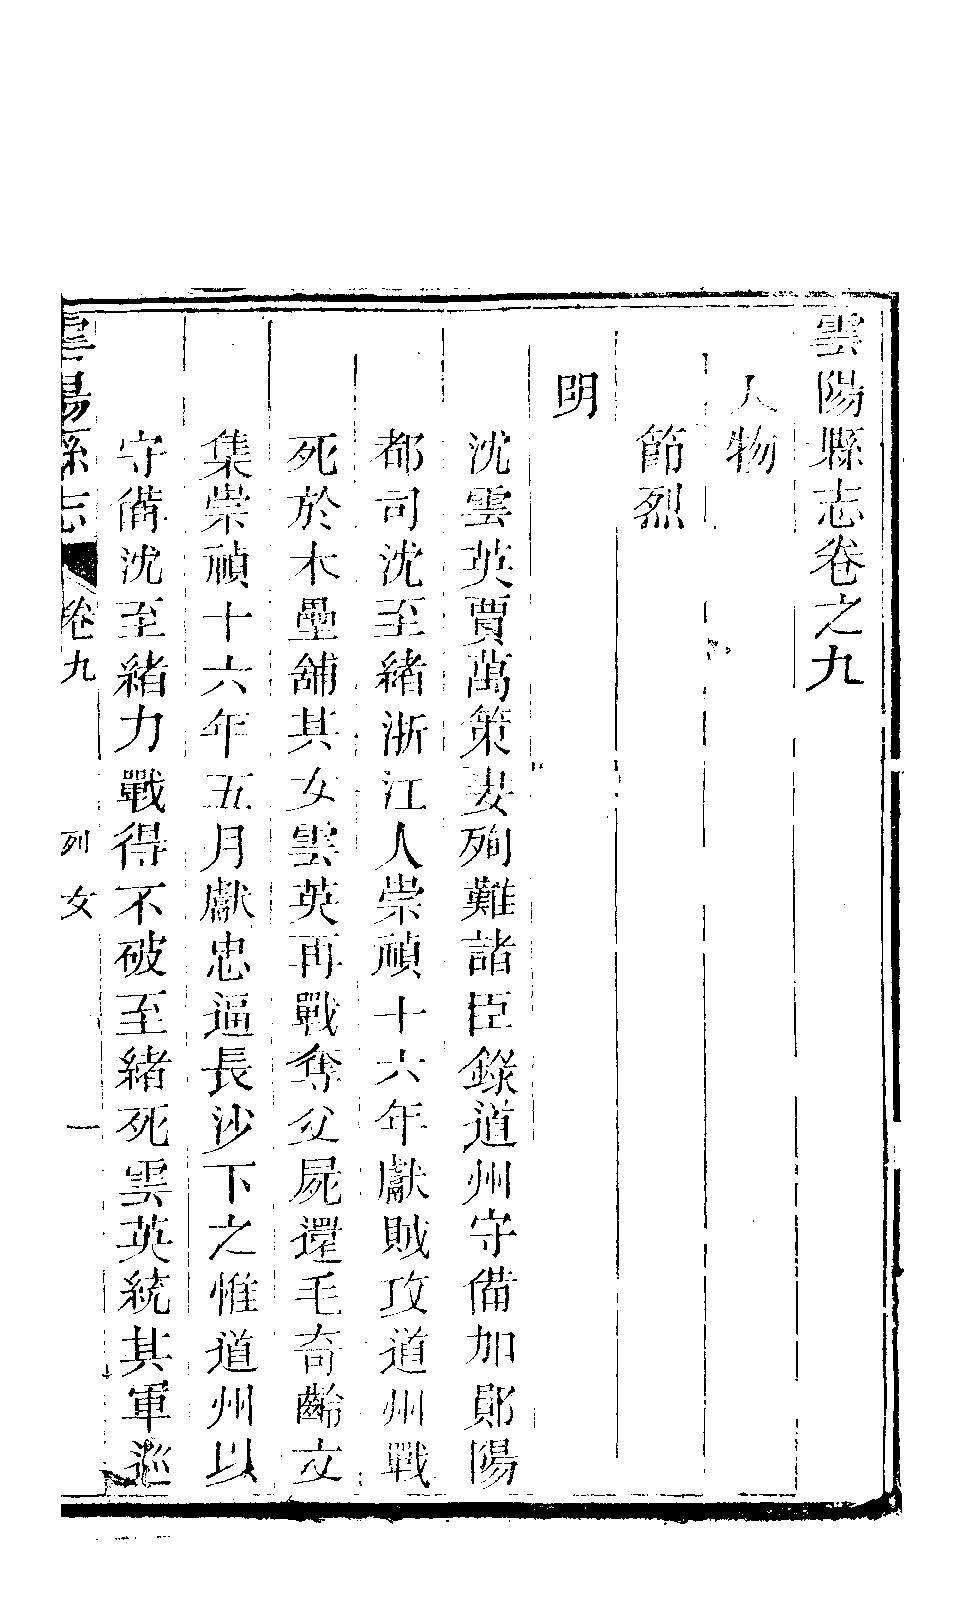 雲陽縣志卷之九
人物
節烈
明
沈雲英賈萬策妻殉難諸臣錄道州守備加鄖陽
都司沈至緒浙江人崇禎十六年獻賊攻道州戰
死於木壘舖其女雲英再戰奪父屍還毛奇齡文
集崇禎十六年五月獻忠逼長沙下之惟道州以
守備沈至緒力戰得不破至緒死雲英統其軍巡
雲陽縣志 卷九 列女 一